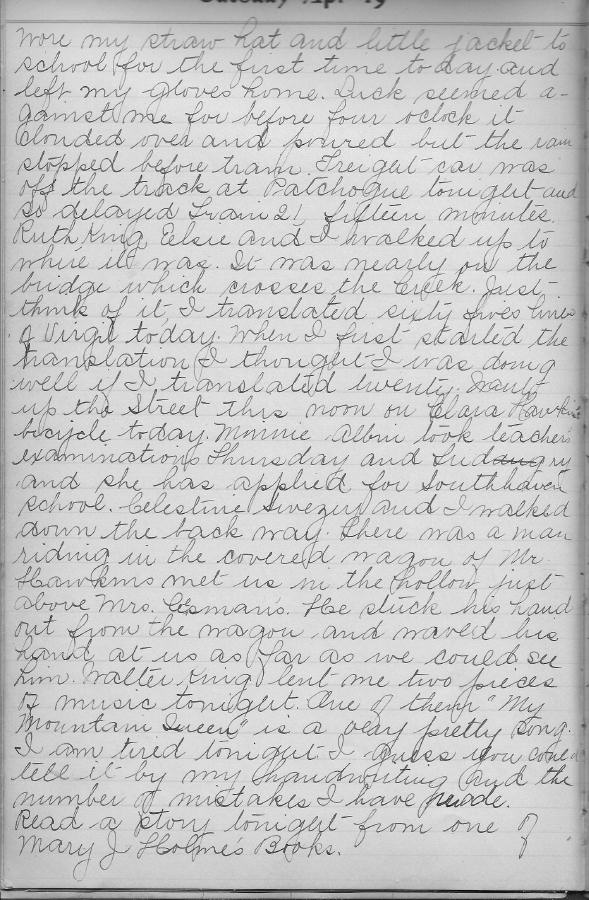 Tuesday Apr 19
Wore my straw hat and little jacket to
school for the first time today and
left my gloves home. Luck seemed a-
gainst me for before four oclock it
clouded over and poured but the rain
stopped before train. Freight car was
off the track at Patchogue tonight and
so delayed Train 21, fifteen minutes.
Ruth King Elsie and I walked up to
where it was. It was nearly on the
bridge which crosses the Creek. Just
think of it I translated sixty fives lines
of Virgil today. When I first started the
translation I thought I was doing
well if I translated twenty. Went
up the Street this noon on Clara Hawkins
bicycle today. Minnie Albin took teachers
examinations Thursday and Friday
and she has applied for Southhaven
school. Celestine Swezey and I walked
down the back way. There was a man
riding in the covered wagon of Mr.
Hawkins met us in the hollow just
above Mrs. He stuck his hand
out from the wagon and waved his
hand at us as far as we could see
him. Walter King lent me two pieces
of music tonight. One of them "My
Mountain Queen" is a very pretty song.
I am tired tonight I guess you could
tell it by my handwriting and the
number of mistakes I have made.
Read a story tonight from one of
Mary J Holme's Books.